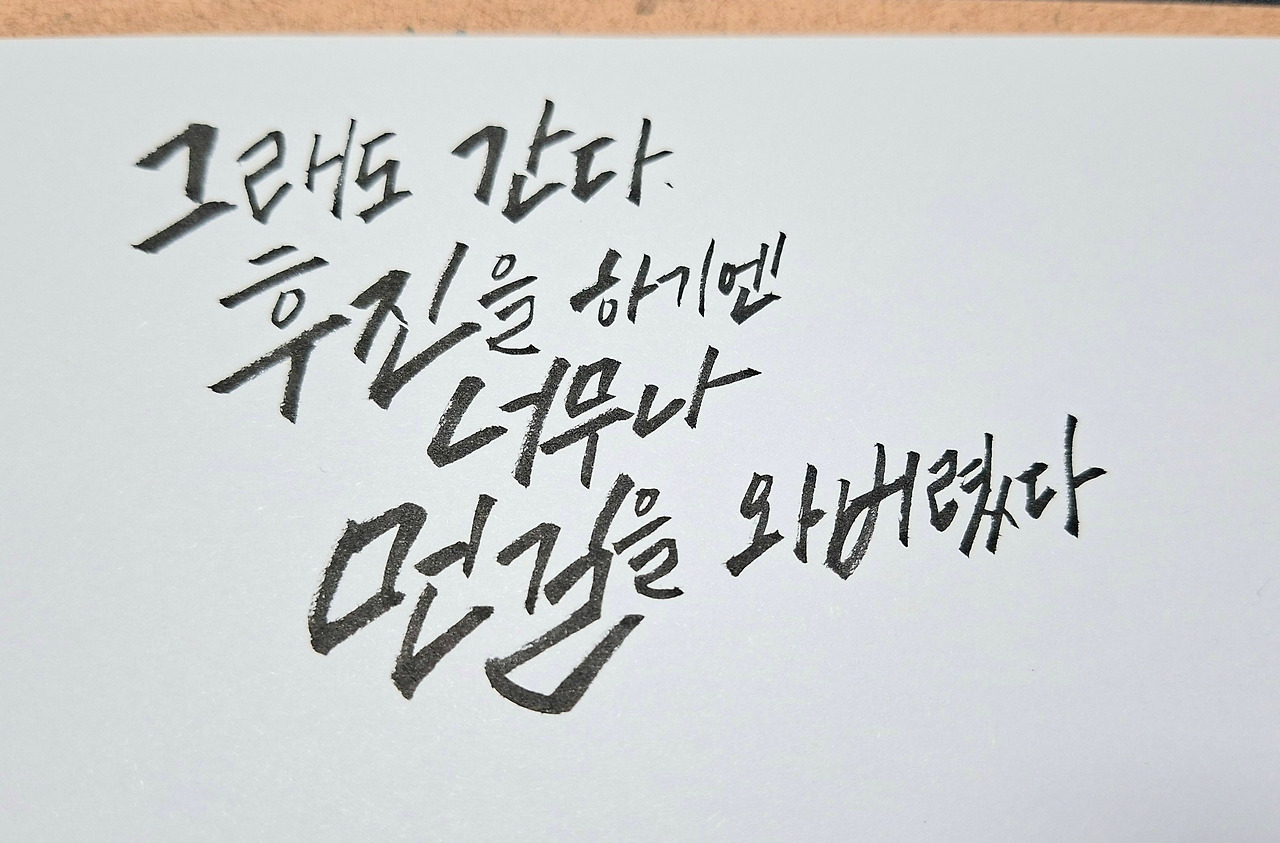 그래도 간다.
후진을 하기엔
너무나
먼길을 와버렸다